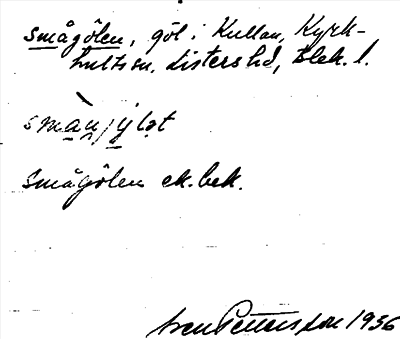 Smågölen, göl i Kullan, Kyrk-
hults sn, Listers hd, Blek. l.
Smågölen ek. bek.
Sven Pettersson 1936